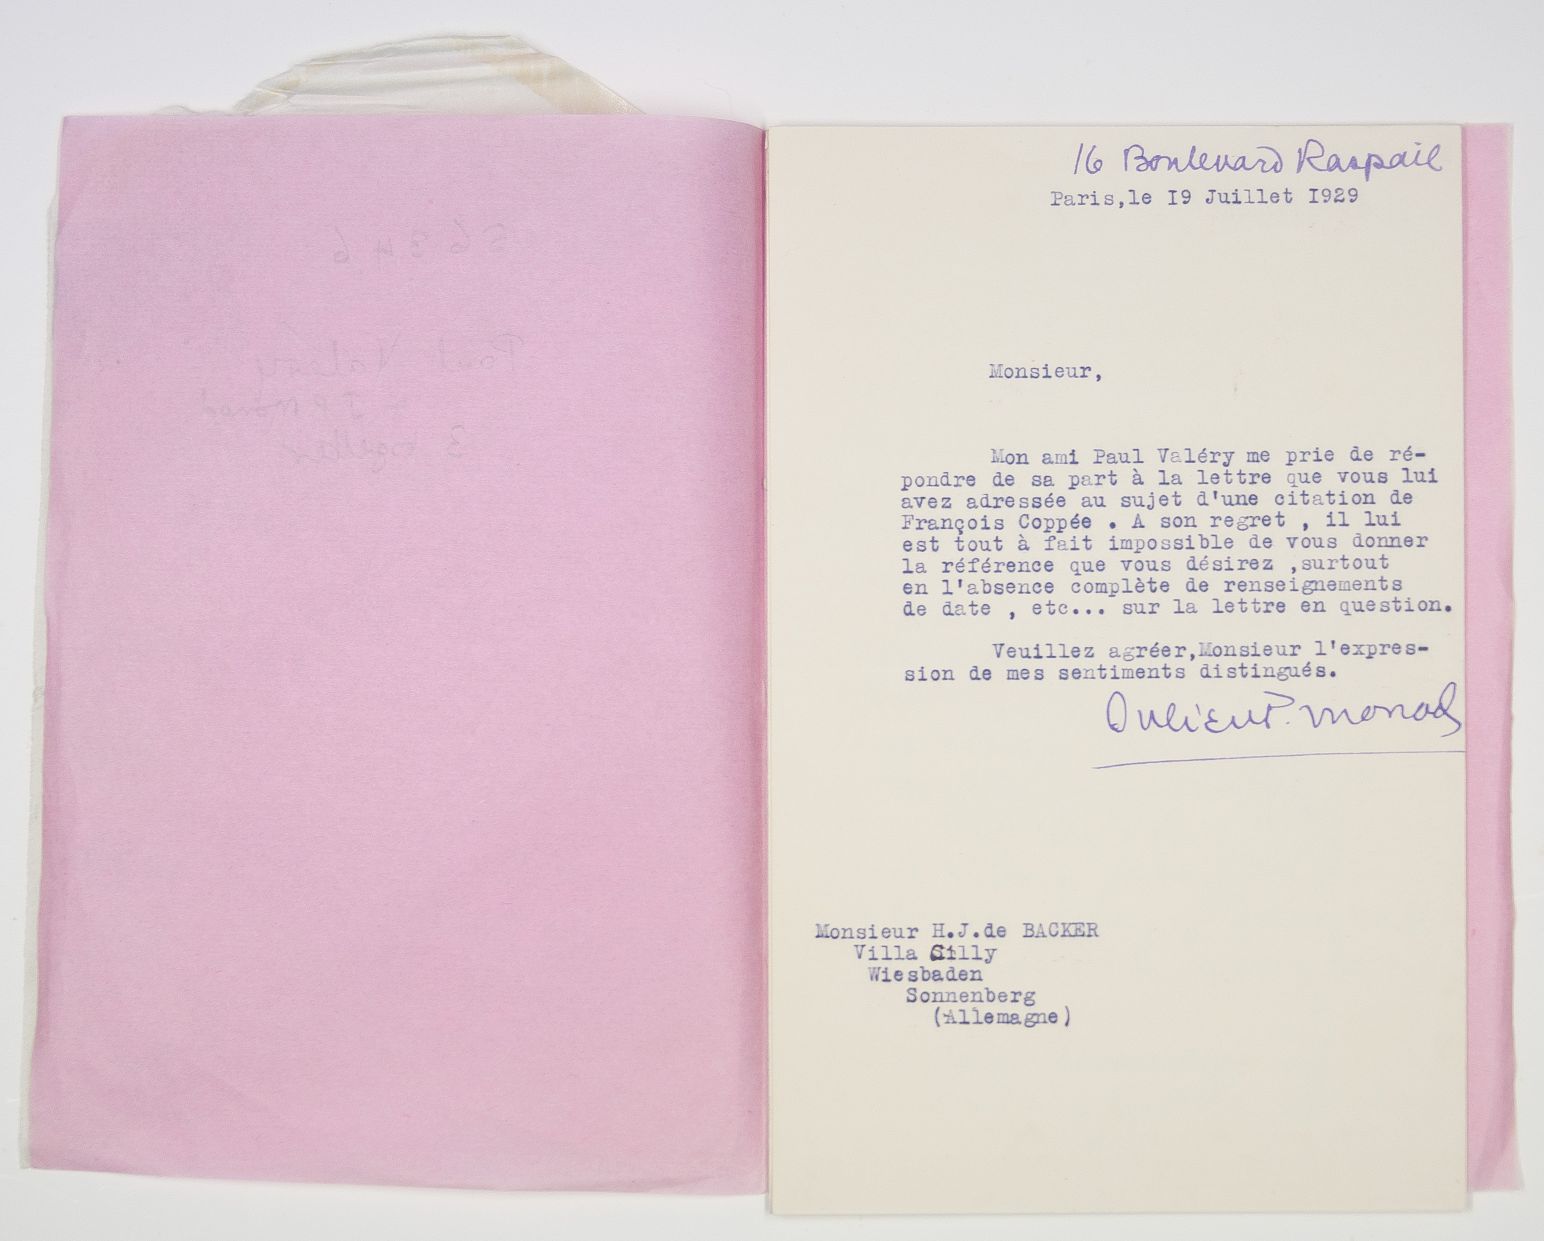 56346
Paul Valéry
+ J P Monod
3
16 Boulevard Raspail
Paris,le I9 Juillet I929
Monsieur,
Mon ami Paul Valéry me prie de ré-
pondre de sa part à la lettre que vous lui
avez adressée au sujet d'une citation de
François Coppée . A son regret , il lui
est tout à fait impossible de vous donner
la référence que vous désirez ,surtout
en l'absence complète de renseignements
de date , etc... sur la lettre en question.
Veuillez agréer,Monsieur l'expres-
sion de mes sentiments distingués.
Julien P. Monod
Monsieur H.J.de BACKER
Villa Silly
Wiesbaden
Sonnenberg
(Allemagne)